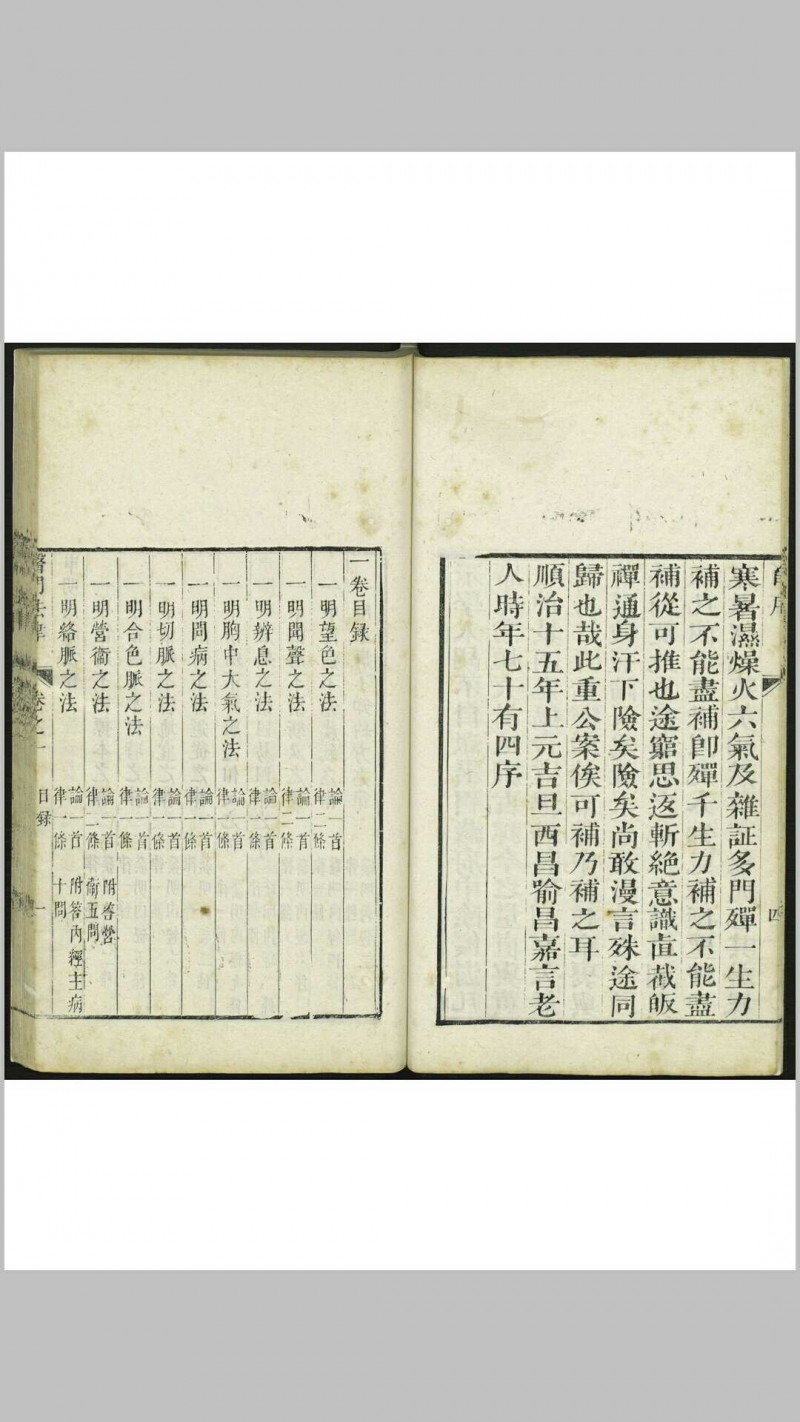 寒暑濕燥火六氣及雜証多門殫一生力
補之不能盡補卽殫千生力補之不能盡
補從可推也途窮思返斬絕意識直截皈
禪通身汗下險矣險矣尚敢漫言殊途同
歸也哉此重公案俟可補乃補之耳
順治十五年上元吉旦西昌喻昌嘉言老
人時年七十有四序
四
一卷目録
一明望色之法 論一首 律二條
一明聞聲之法 論一首 律二條
一明辨息之法 論一首 律一條
一明胸中大氣之法 論一首 律一條
一明問病之法 論一首 律一條
一明切脈之法 論一首 律一條
一明合色脈之法 論一首 律一條
一明營衞之法 論一首 律二條 附答營衞五問
一明絡脈之法 論一首 律一條 附答內經主病十問
醫門法律 卷之一 目録 一